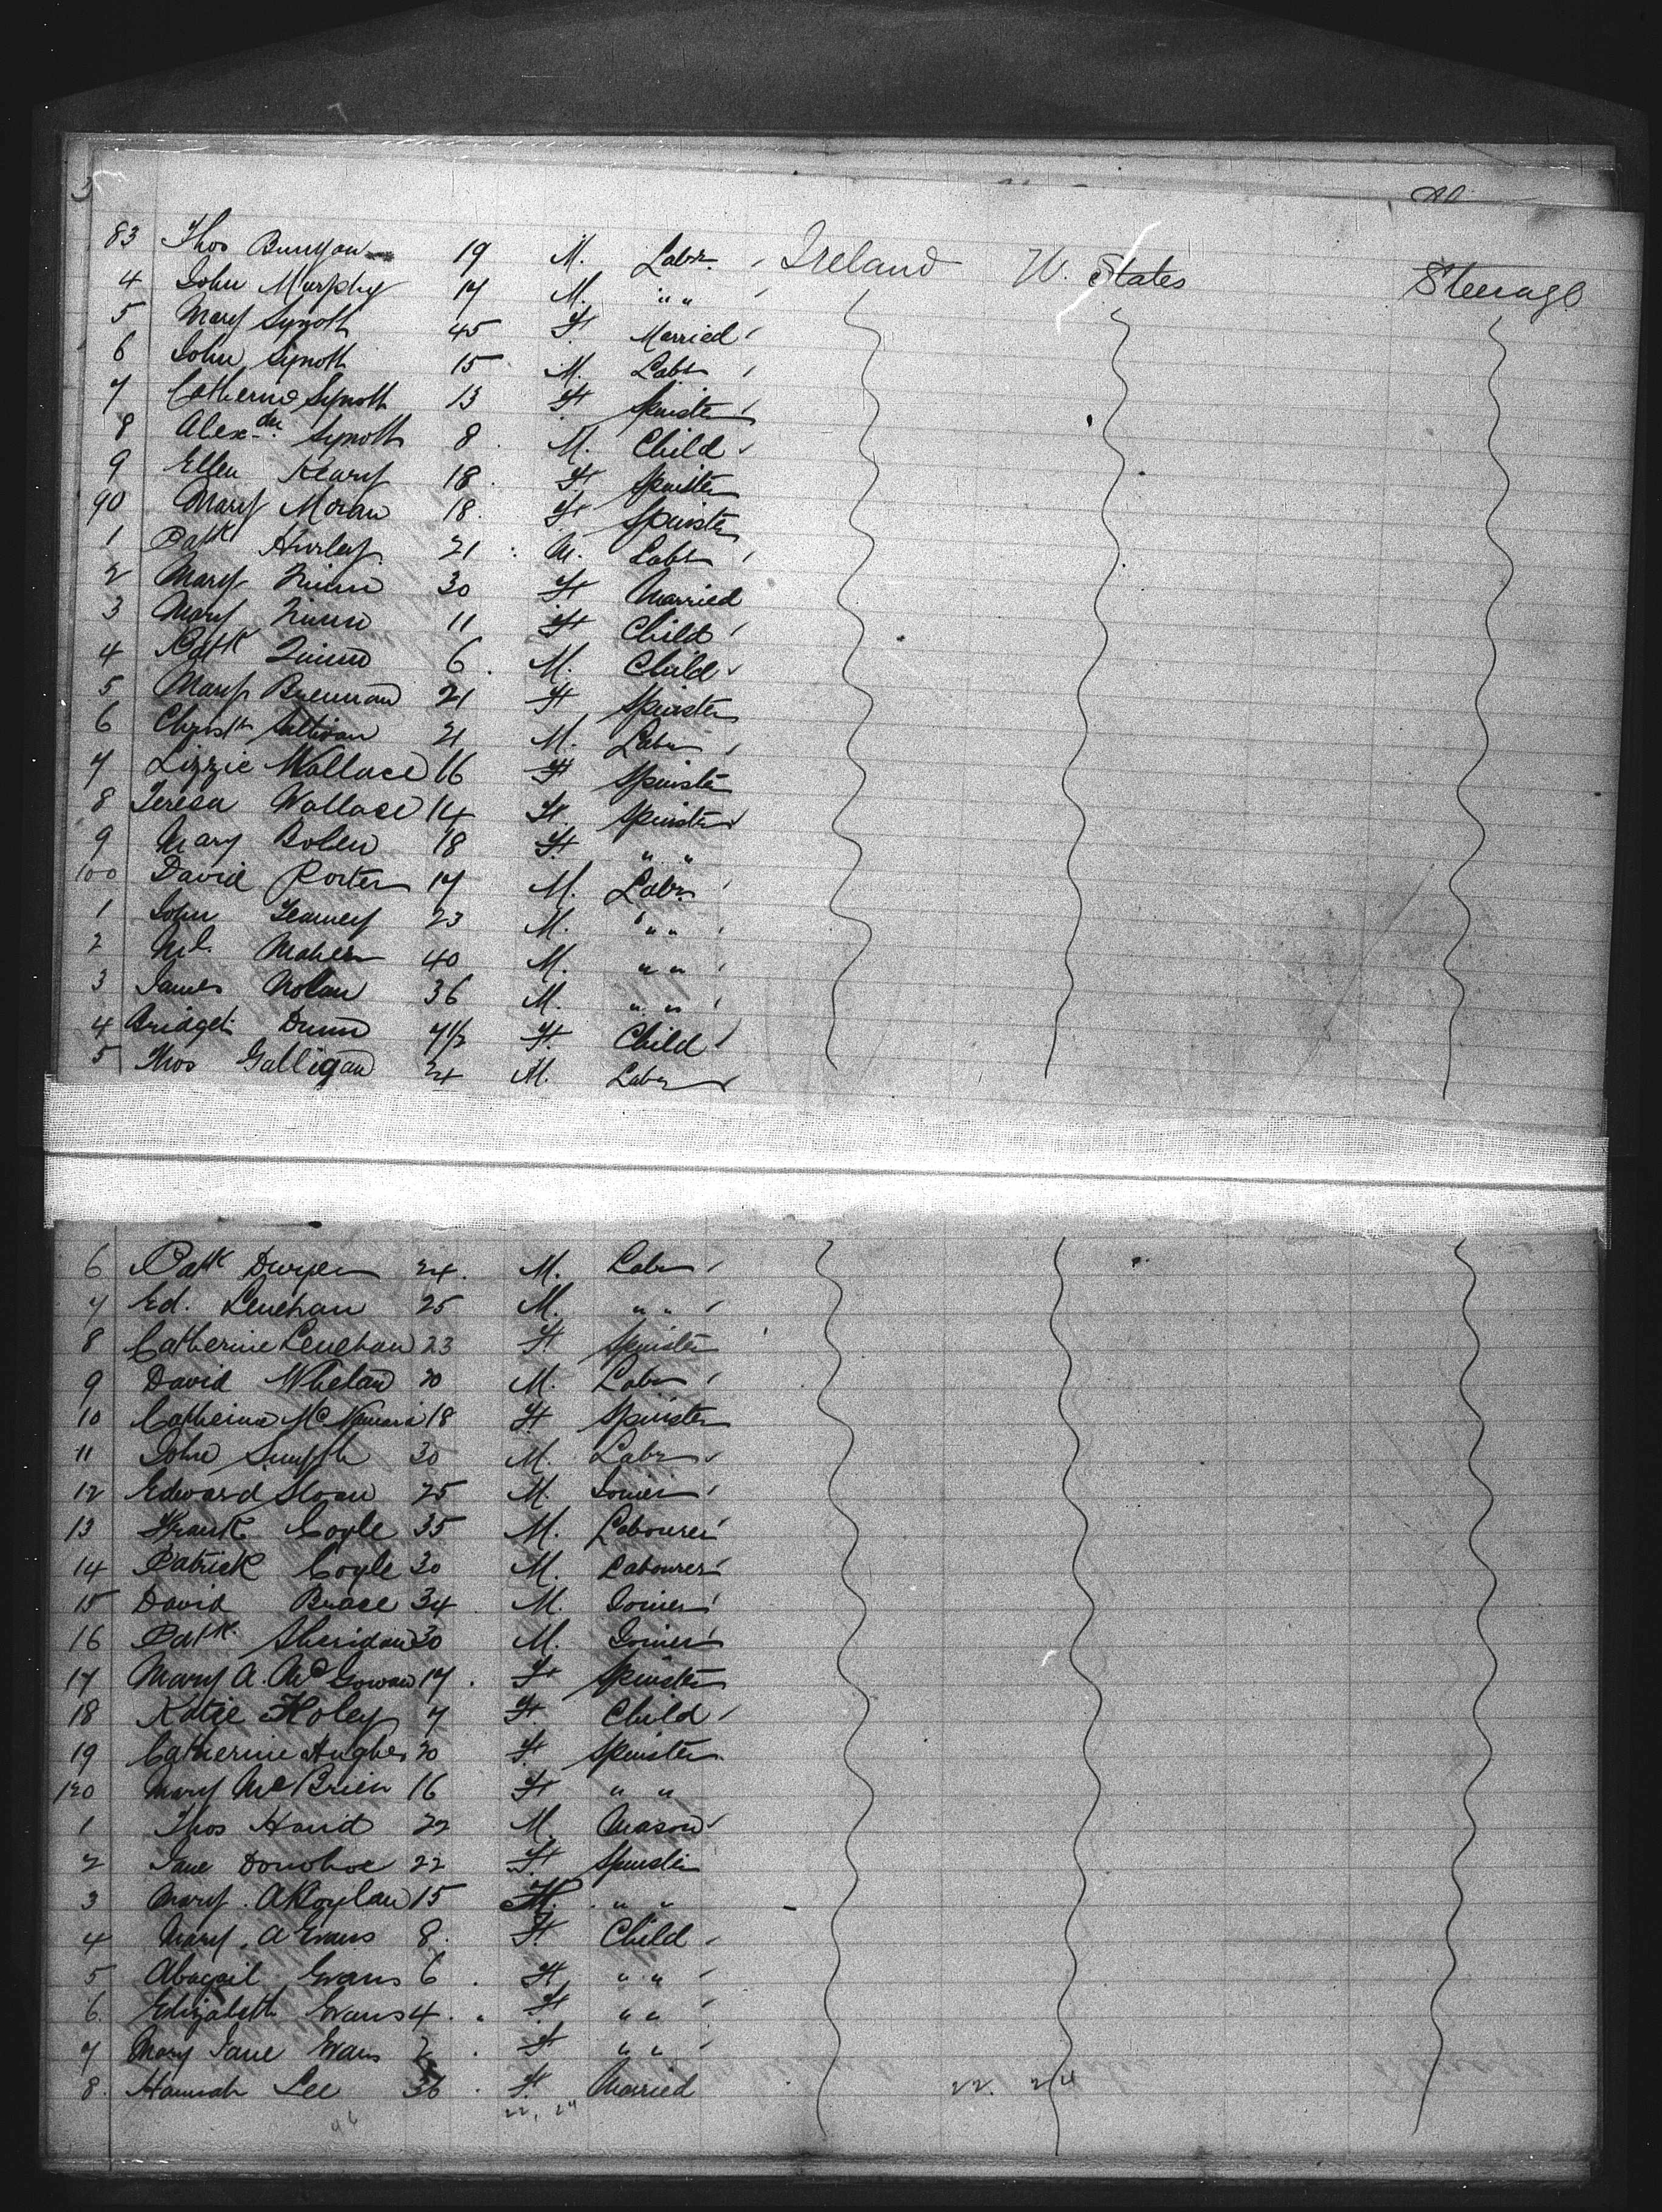 83 Thos Bunyan 19 M. Labr. Ireland U. States Steerage
4 John Murphy 17 M. " "
5 Mary Synott 45 F. Married
6 John Synott 15 M. Labr
7 Catherine Synott 13 F Spinster
8 Alexder Synott 8 M. Child
9 Ellen Keary 18 F Spinster
90 Mary Moran 18 F Spinster
1 Patk Hurley 21 M. Labr
2 Mary Quinn 30 F Married
3 Mary Quinn 11 F Child
4 Patk Quinn 6 M. Child
5 Mary Brennan 21 F Spinster
6 Christr Sullivan 21 M. Labr
7 Lizzie Wallace 16 F Spinster
8 Teresa Wallace 14 F. Spinster
9 Mary Bolen 18 F. " "
100 David Porter 17 M. Labr.
1 John 23 M. " "
2 Ml. Maher 40 M. " "
3 James Nolan 36 M. " "
4 Bridget Dunn 7 1/2 F. Child
5 Thos Galligan 24 M. Labr
6 Patk Dwyer 24. M. Labr
7 Ed. Lenehan 25 M. " "
8 Catherine Lenehan 23 F Spinster
9 David Whelan 20 M. Labr
10 Catherine McNamara 18 F Spinster
11 John 30 M. Labr
12 Edward Sloan 25 M. Joiner
13 Frank Coyle 35 M. Labourer
14 Patrick Coyle 30 M. Labourer
15 David Brace 34 M. Joiner
16 Patk Sheridan 30 M. Joiner
17 Mary A. McGowan 17 F Spinster
18 Katie Foley 7 F Child
19 Catherine Hughes 20 F Spinster
120 Mary McBrien 16 F " "
1 Thos Hand 22 M Mason
2 Jane Donohoe 22 F. Spinster
3 Mary. A 15 F. " "
4 Mary. A Evans 8. F. Child
5 Abagail Evans 6 F " "
6. Elizabeth Evans 4 F " "
7 Mary Jane Evans 2 F " "
8. Hannah Lee 36 F. Married 22. 24
22, 24